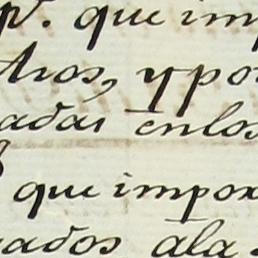 que imp
tros, y por
adas en los
que impor
ados ala